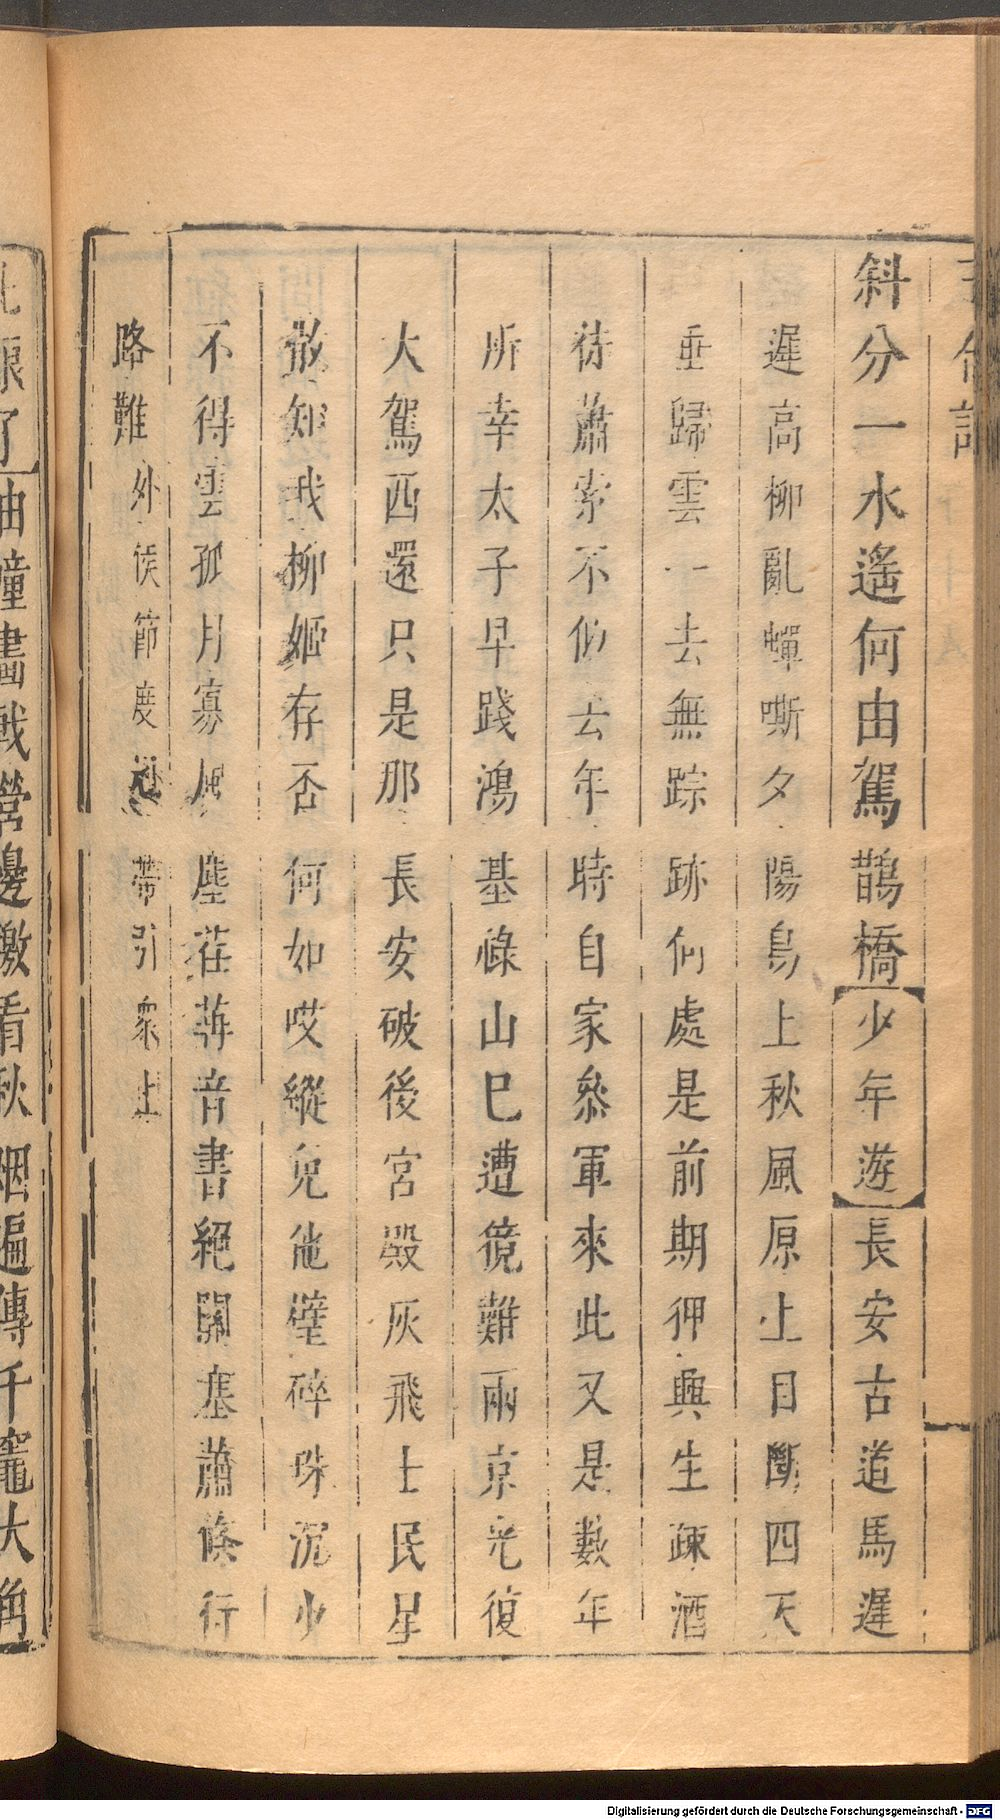 玉合記
斜分一水遙何由駕鵲橋【少年遊】長安古道馬遲
遲高柳亂蟬嘶夕陽鳥上秋風原上目斷四天
垂歸雲一去無踪跡何處是前期狎興生疎酒
徒蕭索不似去年時自家叅軍來此又是數年
所幸太子早踐鴻基祿山已遭獍難兩京光復
大駕西還只是那長安破後宮殿灰飛士民星
散知我柳姬存否何如哎縱免他璧碎珠沉少
不得雲孤月寡風塵荏苒音書絕關塞蕭條行
路難外侯節度冠帶引衆上
油幢畫戟營邊徼看秋烟遍傳千竈大角
Digitalisierung gefördert durch die Deutsche Forschungsgemeinschaft - DFG